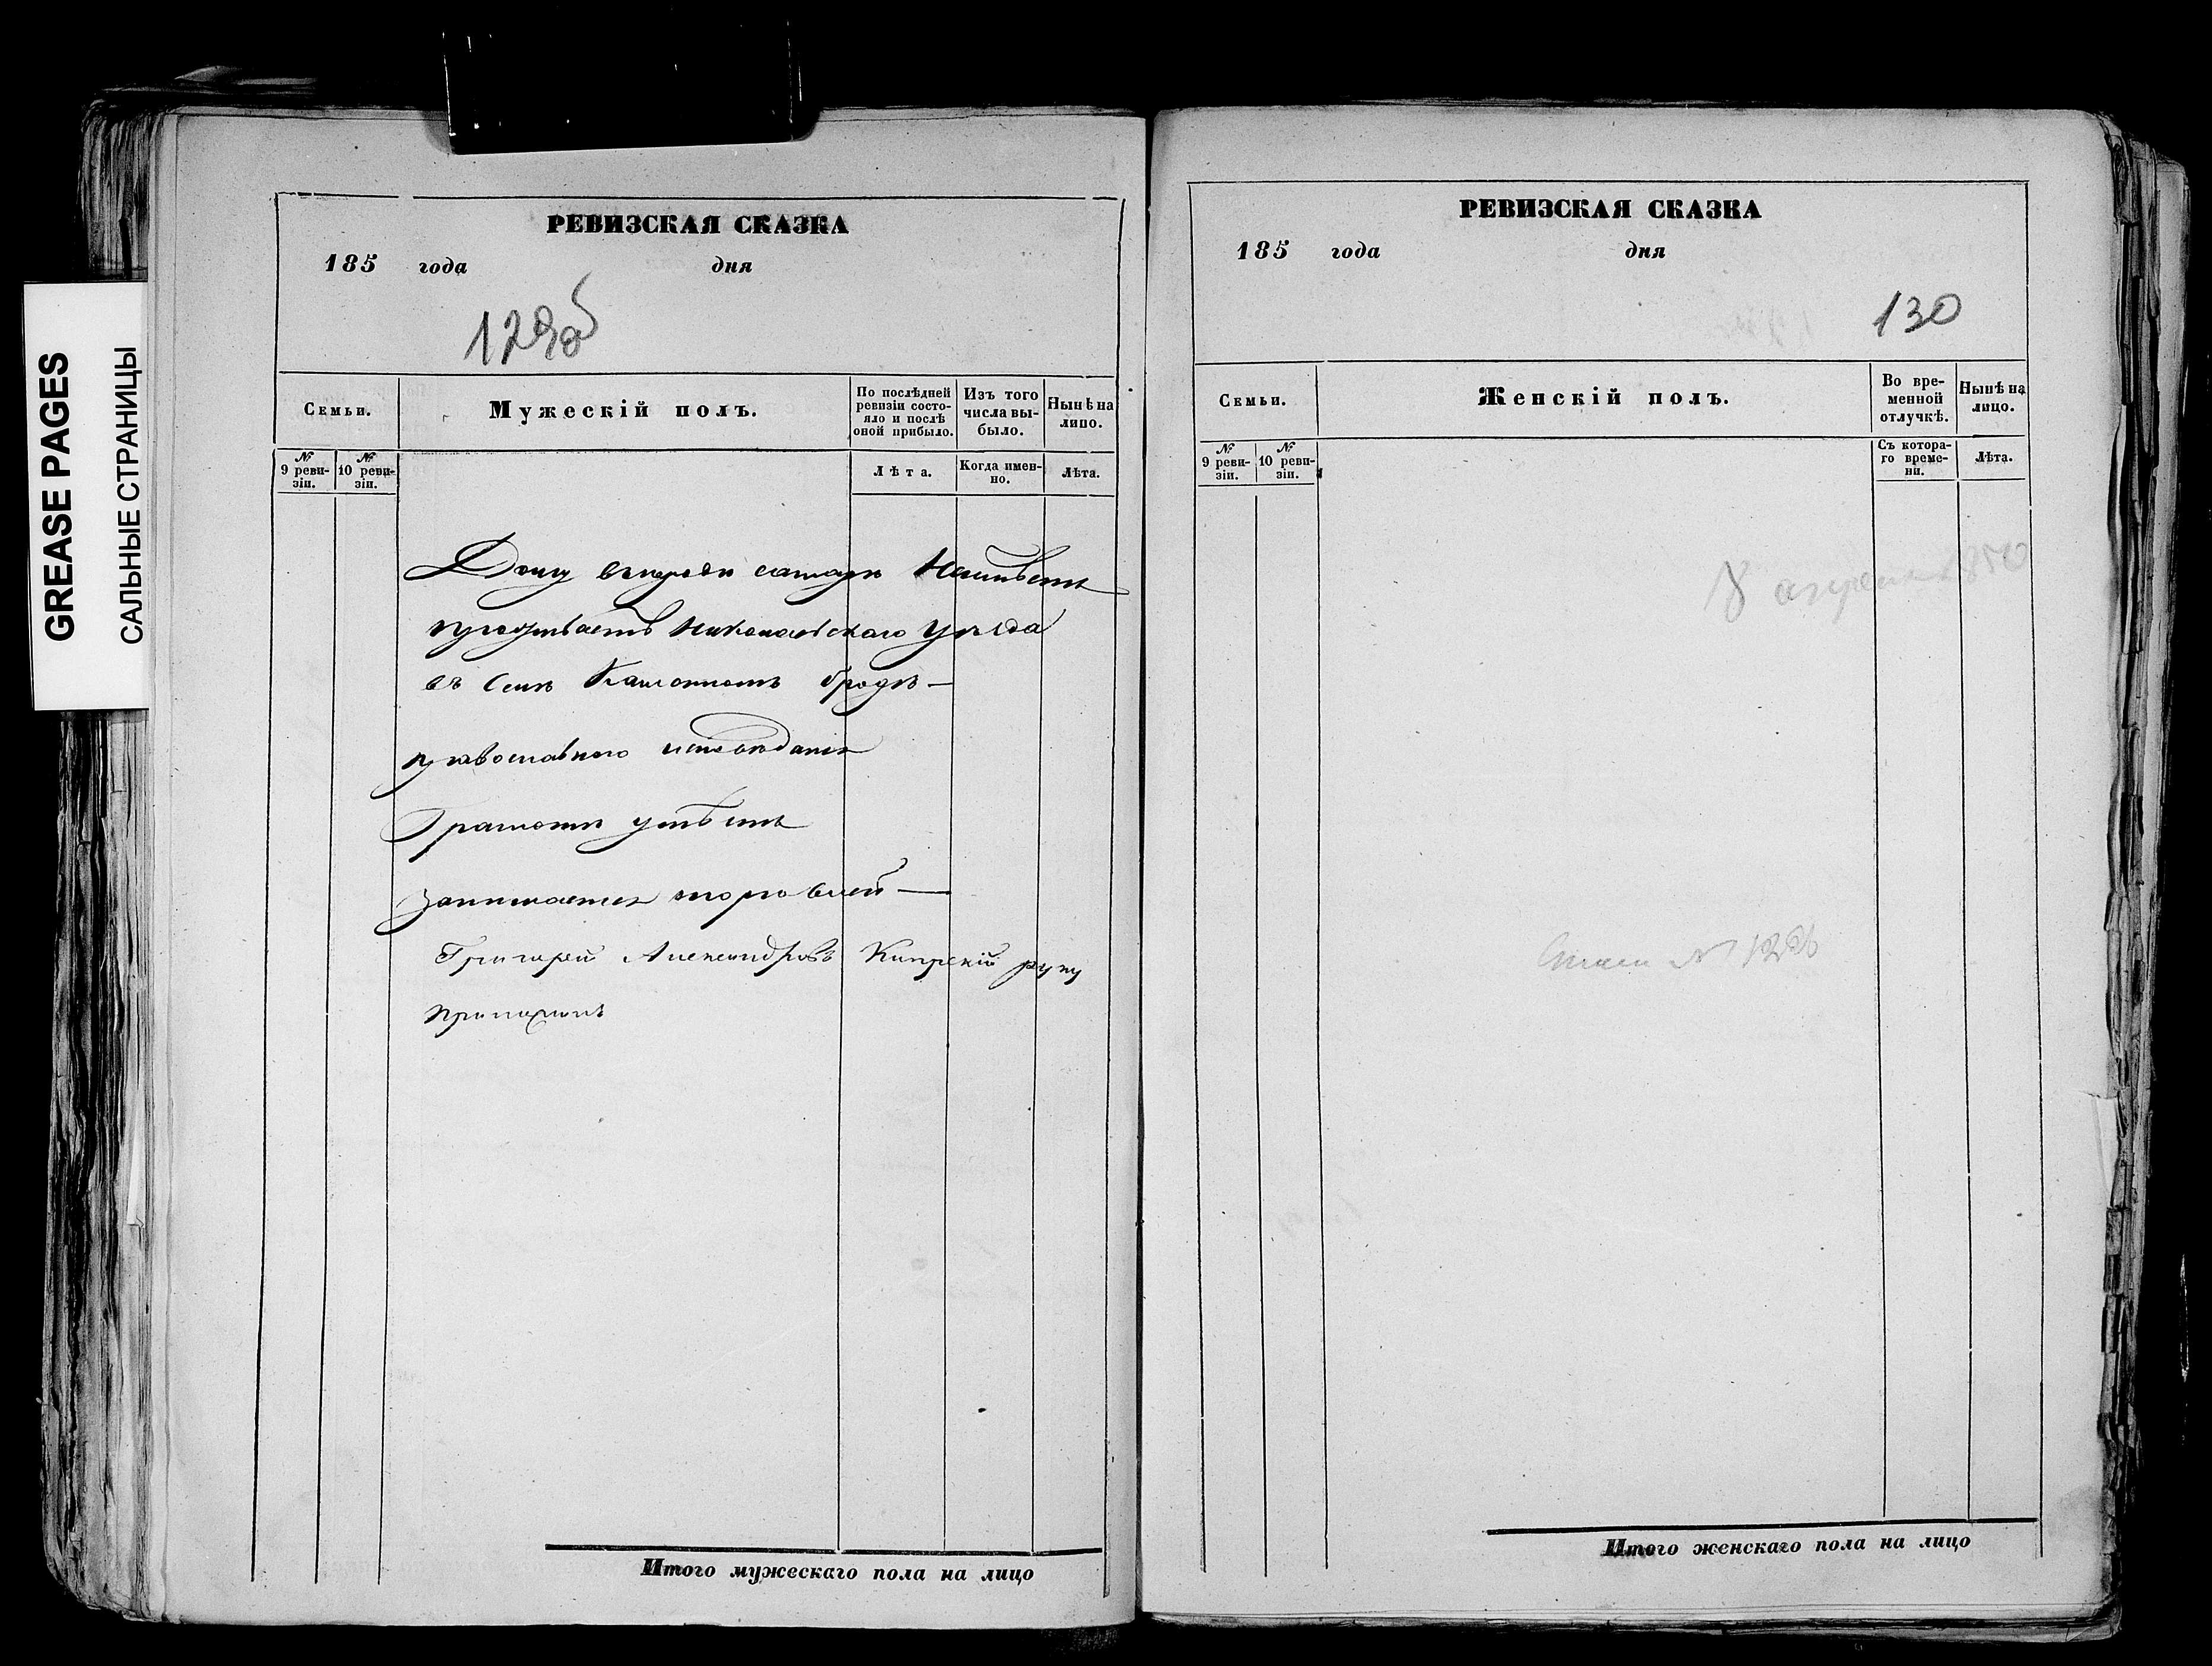 GREASE PAGES
САЛЬНЫЕ СТРАНИЦЫ
РЕВИЗСКАЯ СКАЗКА
185 года дня
129об
Семьи.
Мужескій полъ.
По послѣдней ревизіи состояло и послѣ оной прибыло.
Изъ того числа выбыло.
Нынѣ на лицо.
№ 9 ревизіи.
№ 10 ревизіи.
Лѣта.
Когда именно.
Лѣта.
Дому въ городѣ Самарѣ Неимѣетъ
проживаетъ Николаевскаго уѣзда
въ Селѣ Каменномъ бродѣ —
православнаго исповѣданія
Грамотѣ умѣетъ
Занимается торговлей —
Григорій Александровъ Кипрскій руку
приложилъ
Итого мужескаго пола на лицо
РЕВИЗСКАЯ СКАЗКА
185 года дня
130
Семьи.
Женскій полъ.
Во временной отлучкѣ.
Нынѣ на лицо.
№ 9 ревизіи.
№ 10 ревизіи.
Съ котораго времени.
Лѣта.
8 апреля
Итого женскаго пола на лицо